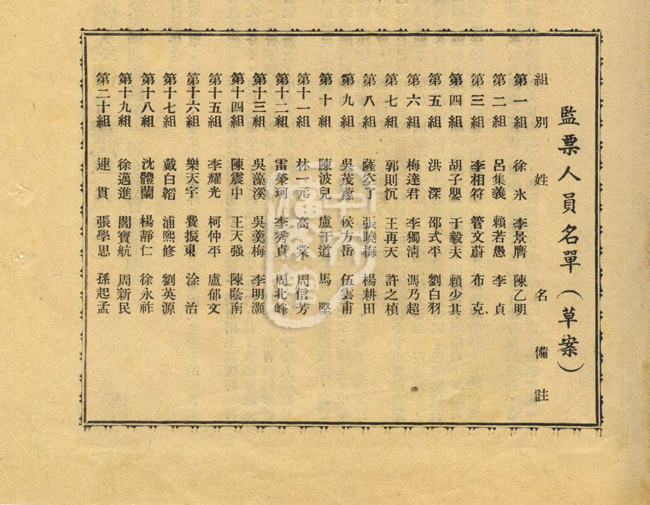 監票人員名單（草案）
組別 姓名 備註
第一組 徐冰 李景膺 陳乙明
第二組 呂集義 賴若愚 李貞
第三組 李相符 管文蔚 布克
第四組 胡子嬰 于毅夫 賴少其
第五組 洪深 邵式平 劉白羽
第六組 梅達君 李獨清 馮乃超
第七組 郭則沉 王再天 許之楨
第八組 薩空了 張曉梅 楊耕田
第九組 吳茂蓀 侯方岳 伍雲甫
第十組 陳波兒 盧于道 馬堅
第十一組 林一元 高棠 周信芳
第十二組 雷榮珂 李秀真 周北峰
第十三組 吳藻溪 吳羹梅 李明灝
第十四組 陳震中 王天强 陳蔭南
第十五組 李耀光 柯仲平 盧郁文
第十六組 樂天宇 費振東 涂治
第十七組 戴白韜 浦熙修 劉英源
第十八組 沈體蘭 楊靜仁 徐永祚
第十九組 徐邁進 閻寶航 周新民
第二十組 連貫 張學思 孫起孟